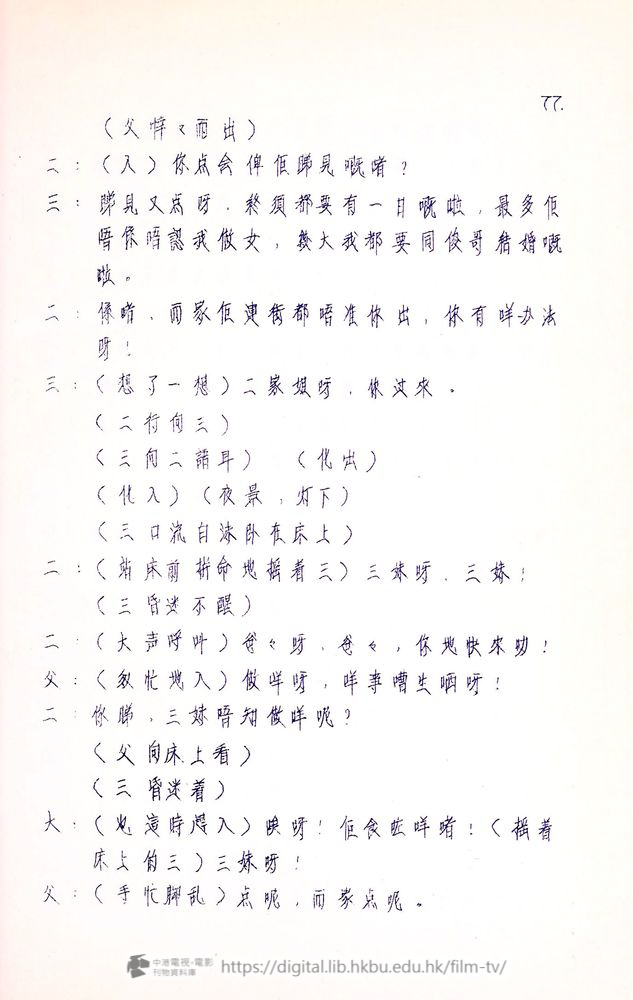 77.
（父悻々而出）
二：（入）你点会俾佢睇見嘅啫？
三：睇見又点呀．終須都要有一日嘅啦，最多佢
唔係唔認我做女，幾大我都要同俊哥結婚嘅
啦。
二：係啫．而家佢連街都唔准你出，你有咩办法
呀！
三：（想了一想）二家姐呀．你过來。
（二行向三）
（三向二語耳）（化出）
（化入）（夜景．灯下）
（三口流白沫卧在床上）
二：（站床前拼命地摇着三）三妹呀．三妹！
（三昏迷不醒）
二：（大声呼叫）爸々呀．爸々，你地快來呀！
父：（匆忙地入）做咩呀，咩事嘈生晒呀！
二：你睇．三妹唔知做咩呢？
（父向床上看）
（三昏迷着）
大：（也這時撲入）唉呀！佢食咗咩啫！（摇着
床上的三）三妹呀！
父：（手忙脚乱）点呢．而家点呢。
中港電視·電影
刊物資料庫
https://digital.lib.hkbu.edu.hk/film-tv/